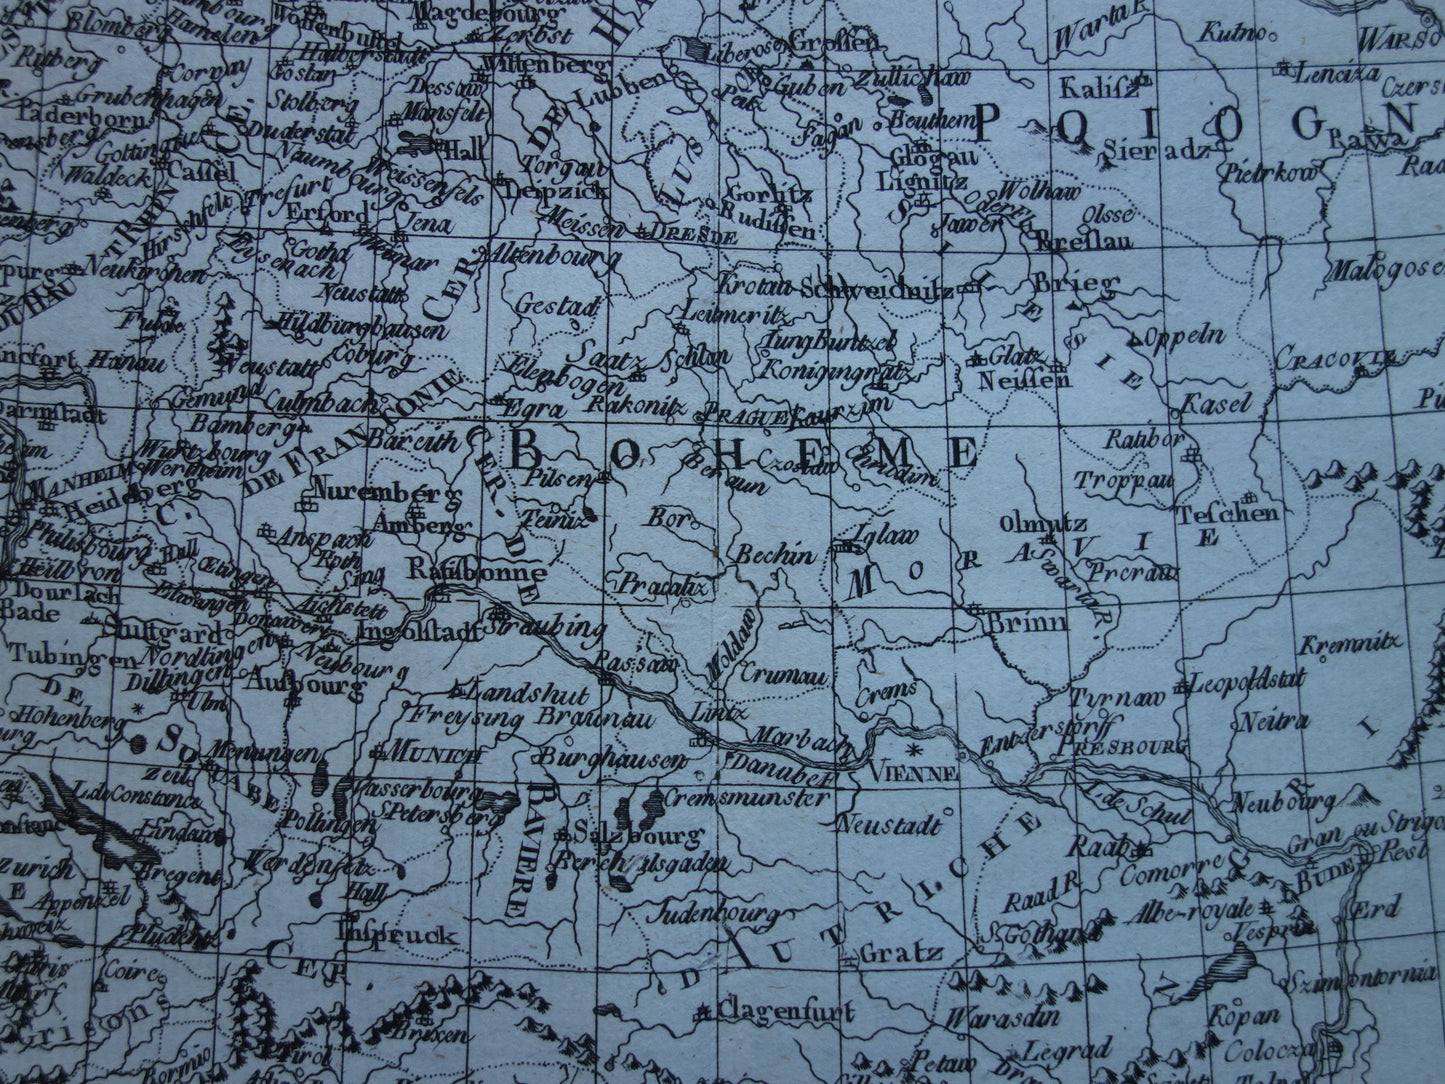 Magdebourg
Zerbst
Blomberg
Hamelen
Wolfenbuttel
Halberstadt
Liberose
Groſſen
Warta R
Kutno
Ritberg
Corvay
Goslar
Wittenberg
Deſſaw
Lubben
Guben
Zullichaw
Kaliſz
Lenciza
Grubenhagen
Stolberg
Mansfelt
Paderborn
Duderstat
Beuthem
P O I O G N
Gottingue
Naumbourg
Hall
Torgau
LUS
Glogau
Sieradz
Rawa
Waldeck
Caſſel
Trefurt
Weissenfels
Leipzick
Gorlitz
Lignitz
Wolhaw
Pietrkow
Hirschfelt
Erford
Jena
Meissen
Budiſſen
Jawer
Olsse
DRESDE
Breſlau
Neukirchen
Gotha
Eysenach
Weimar
Altenbourg
Malogose
Neustatt
Gestad
Krotau
Schweidnitz
Brieg
Fulde
Hildburghausen
Leitmeritz
Hanau
Coburg
Saatz
Schlan
Jung Buntzel
Glatz
Oppeln
Neustatt
Elenbogen
Konigingratz
Neiſſen
CRACOVIE
Darmſtadt
Gemund
Culmbach
Egra
Rakonitz
PRAGUE
Kaurzim
Kasel
Bamberg
DE FRANCONIE
Bareith
BOHEME
Ratibor
Wurtzbourg
MANHEIM
Wertheim
Pilsen
Beraun
Czoslaw
Troppau
Heidelberg
Nuremberg
Teſchen
Philisbourg
Amberg
Teinitz
Bor
Iglaw
Olmutz
Anspach
Hall
Roth
Bechin
MORAVIE
Heilbron
Œtingen
Ratiſbonne
Praçalitz
Prerau
Swarta R.
Dourlach
Elwangen
Aichstett
Bade
Stuttgrad
Donawert
Ingolſtadt
Straubing
Brinn
Tubingen
Nordlingen
Neubourg
Paſsaw
Moldaw
Kremnitz
Dillingen
Auſbourg
Landshut
Crumau
Crems
Tyrnaw
Leopoldstat
Ulm
Hohenberg
Freysing
Braunau
Lintz
Entzerstorff
Neitra
SOUABE
Memungen
MUNICH
Burghausen
Marbach
VIENNE
PRESBOURG
Zeil
Danube R
L. de Constance
Wasserbourg
Cremsmunster
I. de Schut
Neubourg
Lindau
Pollingen
St Petersberg
BAVIERE
Saltzbourg
Neustadt
Raab
Gran ou Strigo
Zurich
Bregent
Werdenfelz
Comorre
BUDE
Pest
Appenzel
Hall
Raad R
Albe-royale
Erd
Pludentz
Inspruck
Judenbourg
D'AUTRICHE
St Gothard
Vesprin
Coire
CER
Gratz
Szimontornia
Grisons
Brixen
Clagenfurt
Warasdin
Kopan
Bormio
Tirol
Petaw
Legrad
Colocza